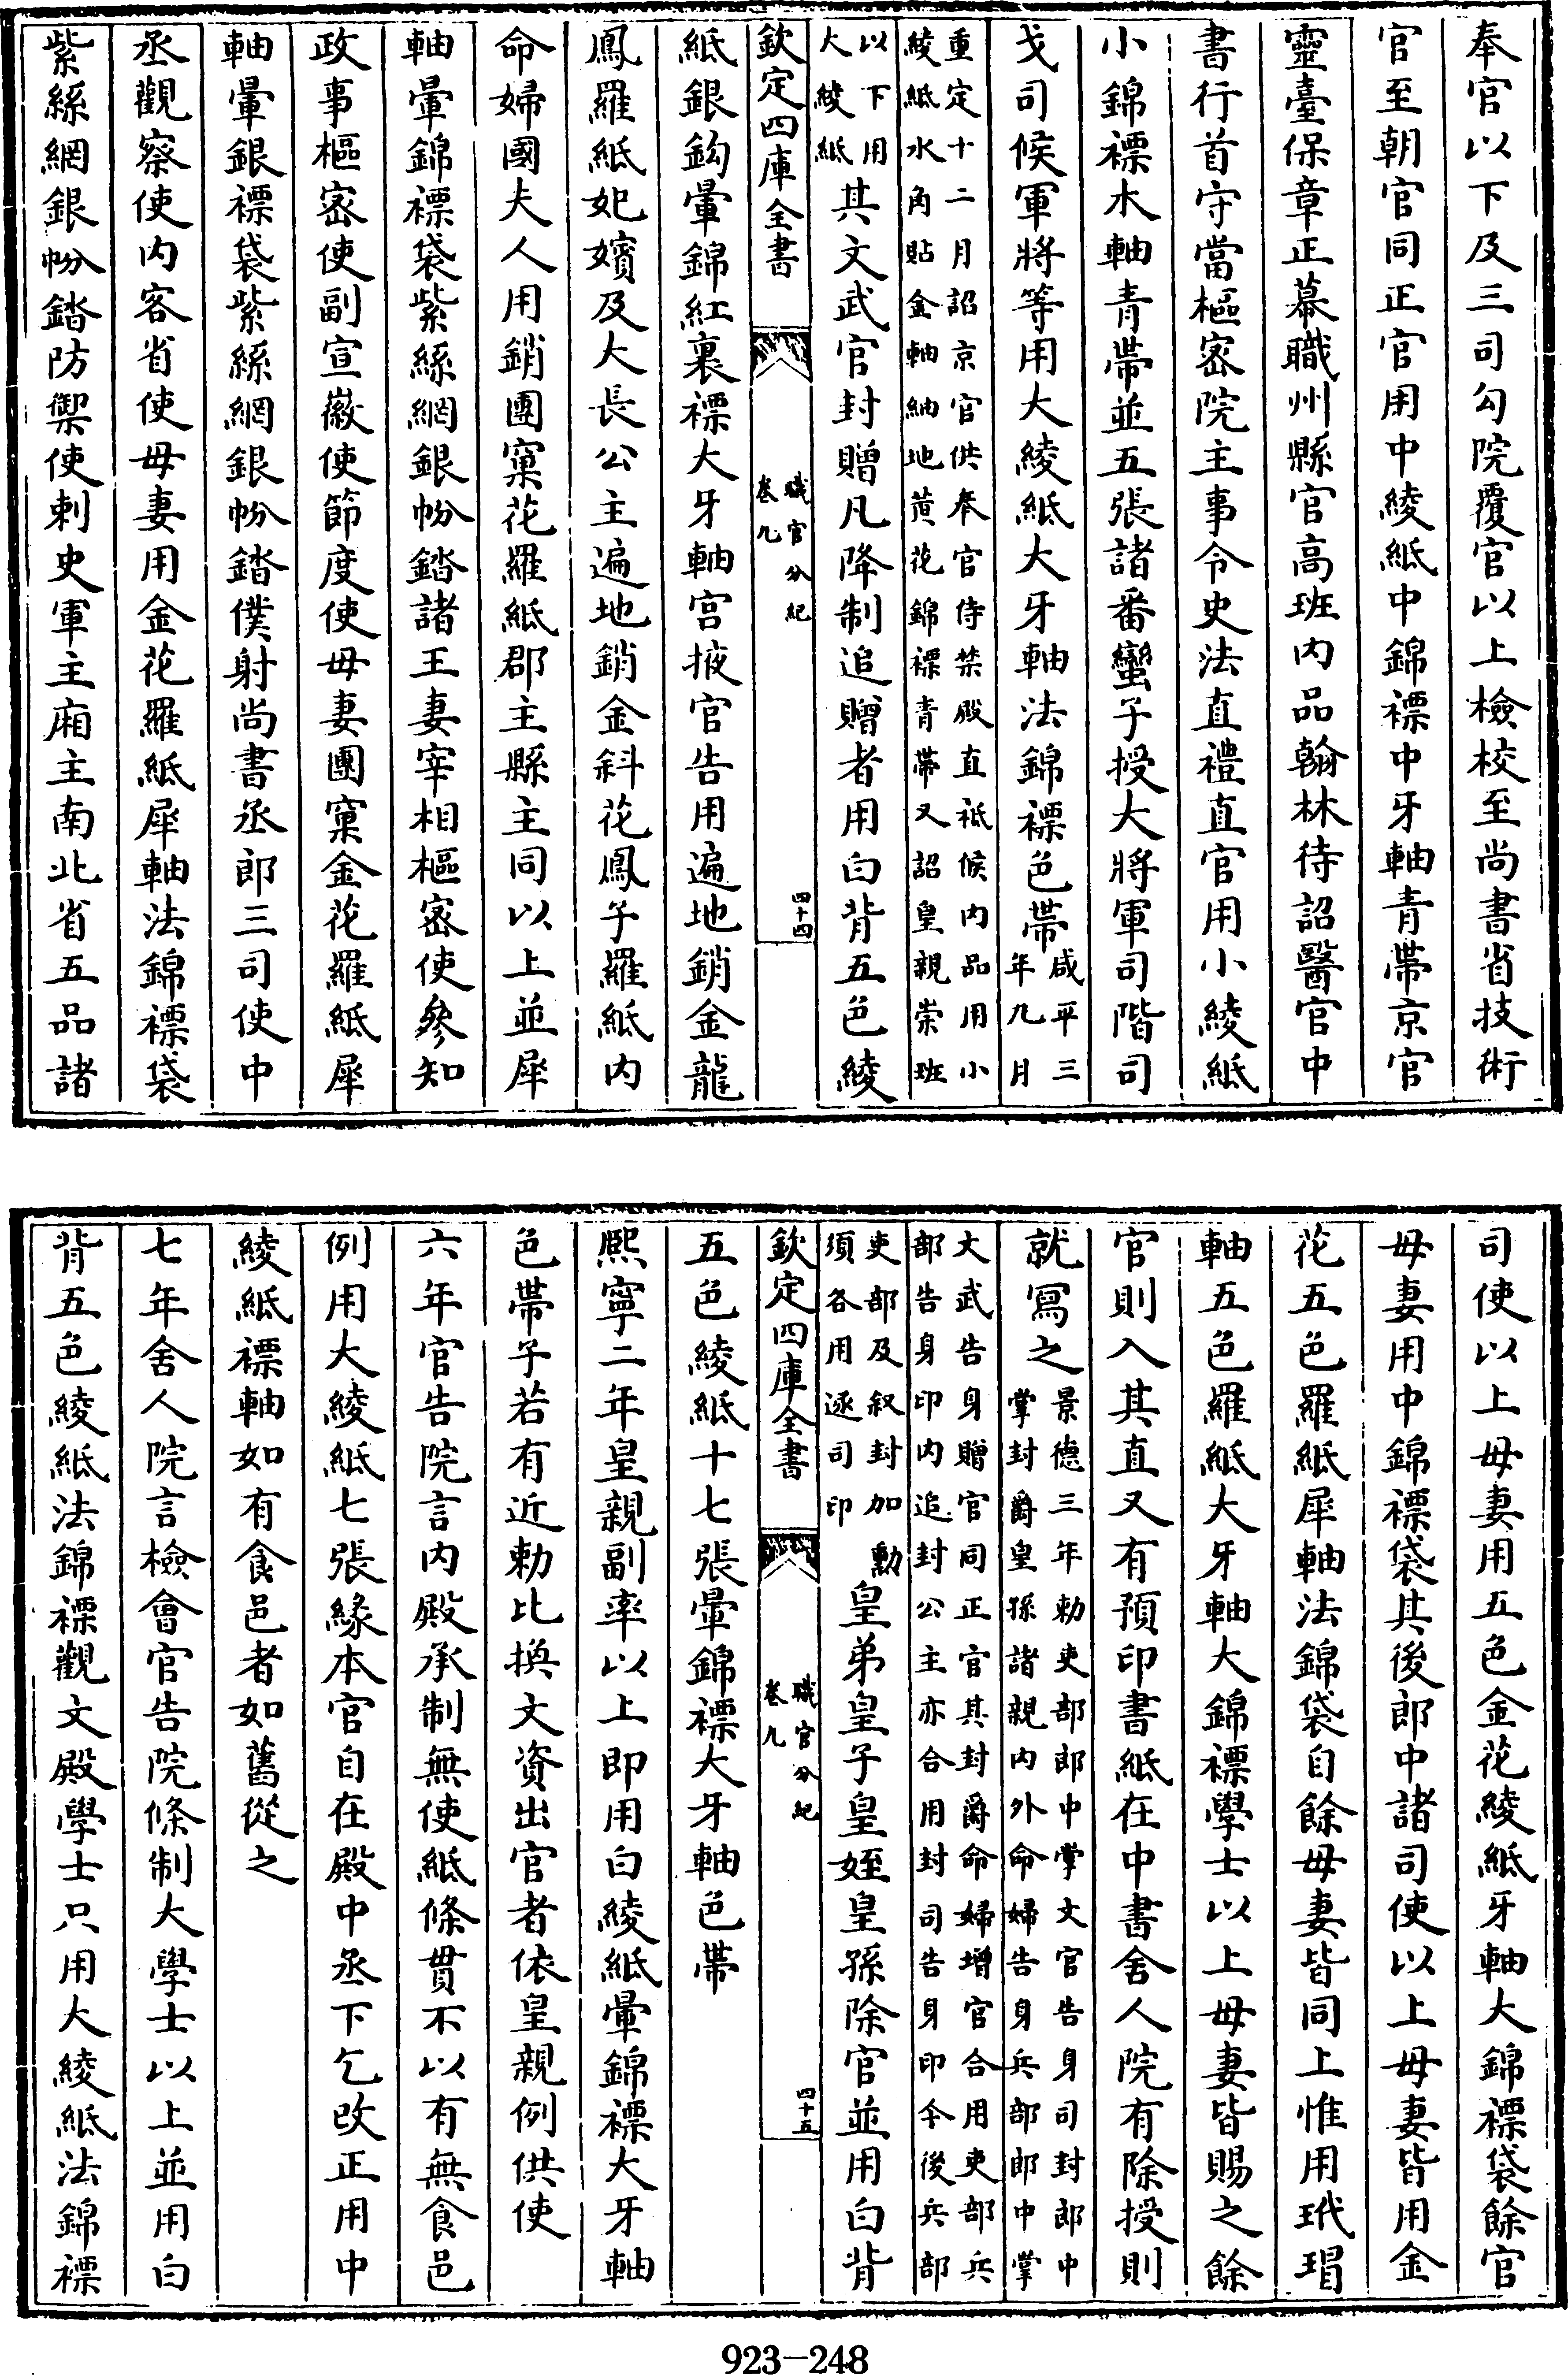 奉官以下及三司勾院覆官以上檢校至尚書省技術
官至朝官同正官用中綾紙中錦褾中牙軸青帶京官
靈臺保章正幕職州縣官高班内品翰林待詔醫官中
書行首守當樞宻院主事令史法直禮直官用小綾紙
小錦褾木軸青帶並五張諸番蠻子授大將軍司階司
戈司候軍將等用大綾紙大牙軸法錦褾色帶咸平三
年九月
重定十二月詔京官供奉官侍禁殿直祗候内品用小
綾紙水角貼金軸紬地黄花錦褾青帶又詔皇親崇班
以下用
大綾紙其文武官封贈凡降制追贈者用白背五色綾
欽定四庫全書
職官分紀
卷九
四十四
紙銀鈎暈錦紅裏褾大牙軸宫掖官告用遍地銷金龍
鳳羅紙妃嬪及大長公主遍地銷金斜花鳳子羅紙内
命婦國夫人用銷團窠花羅紙郡主縣主同以上並犀
軸暈錦褾袋紫絲網銀帉錔諸王妻宰相樞宻使參知
政事樞宻使副宣徽使節度使母妻團窠金花羅紙犀
軸暈銀褾袋紫絲網銀帉錔僕射尚書丞郎三司使中
丞觀察使内客省使母妻用金花羅紙犀軸法錦褾袋
紫絲網銀帉錔防禦使刺史軍主廂主南北省五品諸
司使以上母妻用五色金花綾紙牙軸大錦褾袋餘官
母妻用中錦褾袋其後郎中諸司使以上母妻皆用金
花五色羅紙犀軸法錦袋自餘母妻皆同上惟用玳瑁
軸五色羅紙大牙軸大錦褾學士以上母妻皆賜之餘
官則入其直又有預印書紙在中書舍人院有除授則
就冩之景德三年勅吏部郎中掌文官告身司封郎中
掌封爵皇孫諸親内外命婦告身兵部郎中掌
大武告身贈官同正官其封爵命婦增官合用吏部兵
部告身印内追封公主亦合用封司告身印今後兵部
吏部及叙封加勳
須各用逐司印皇弟皇子皇姪皇孫除官並用白背
欽定四庫全書
職官分紀
卷九
四十五
五色綾紙十七張暈錦褾大牙軸色帶
熙寧二年皇親副率以上即用白綾紙暈錦褾大牙軸
色帶子若有近勅比換文資出官者依皇親例供使
六年官告院言内殿承制無使紙條貫不以有無食邑
例用大綾紙七張縁本官自在殿中丞下乞改正用中
綾紙褾軸如有食邑者如舊從之
七年舍人院言檢會官告院條制大學士以上並用白
背五色綾紙法錦褾觀文殿學士只用大綾紙法錦褾
923-248